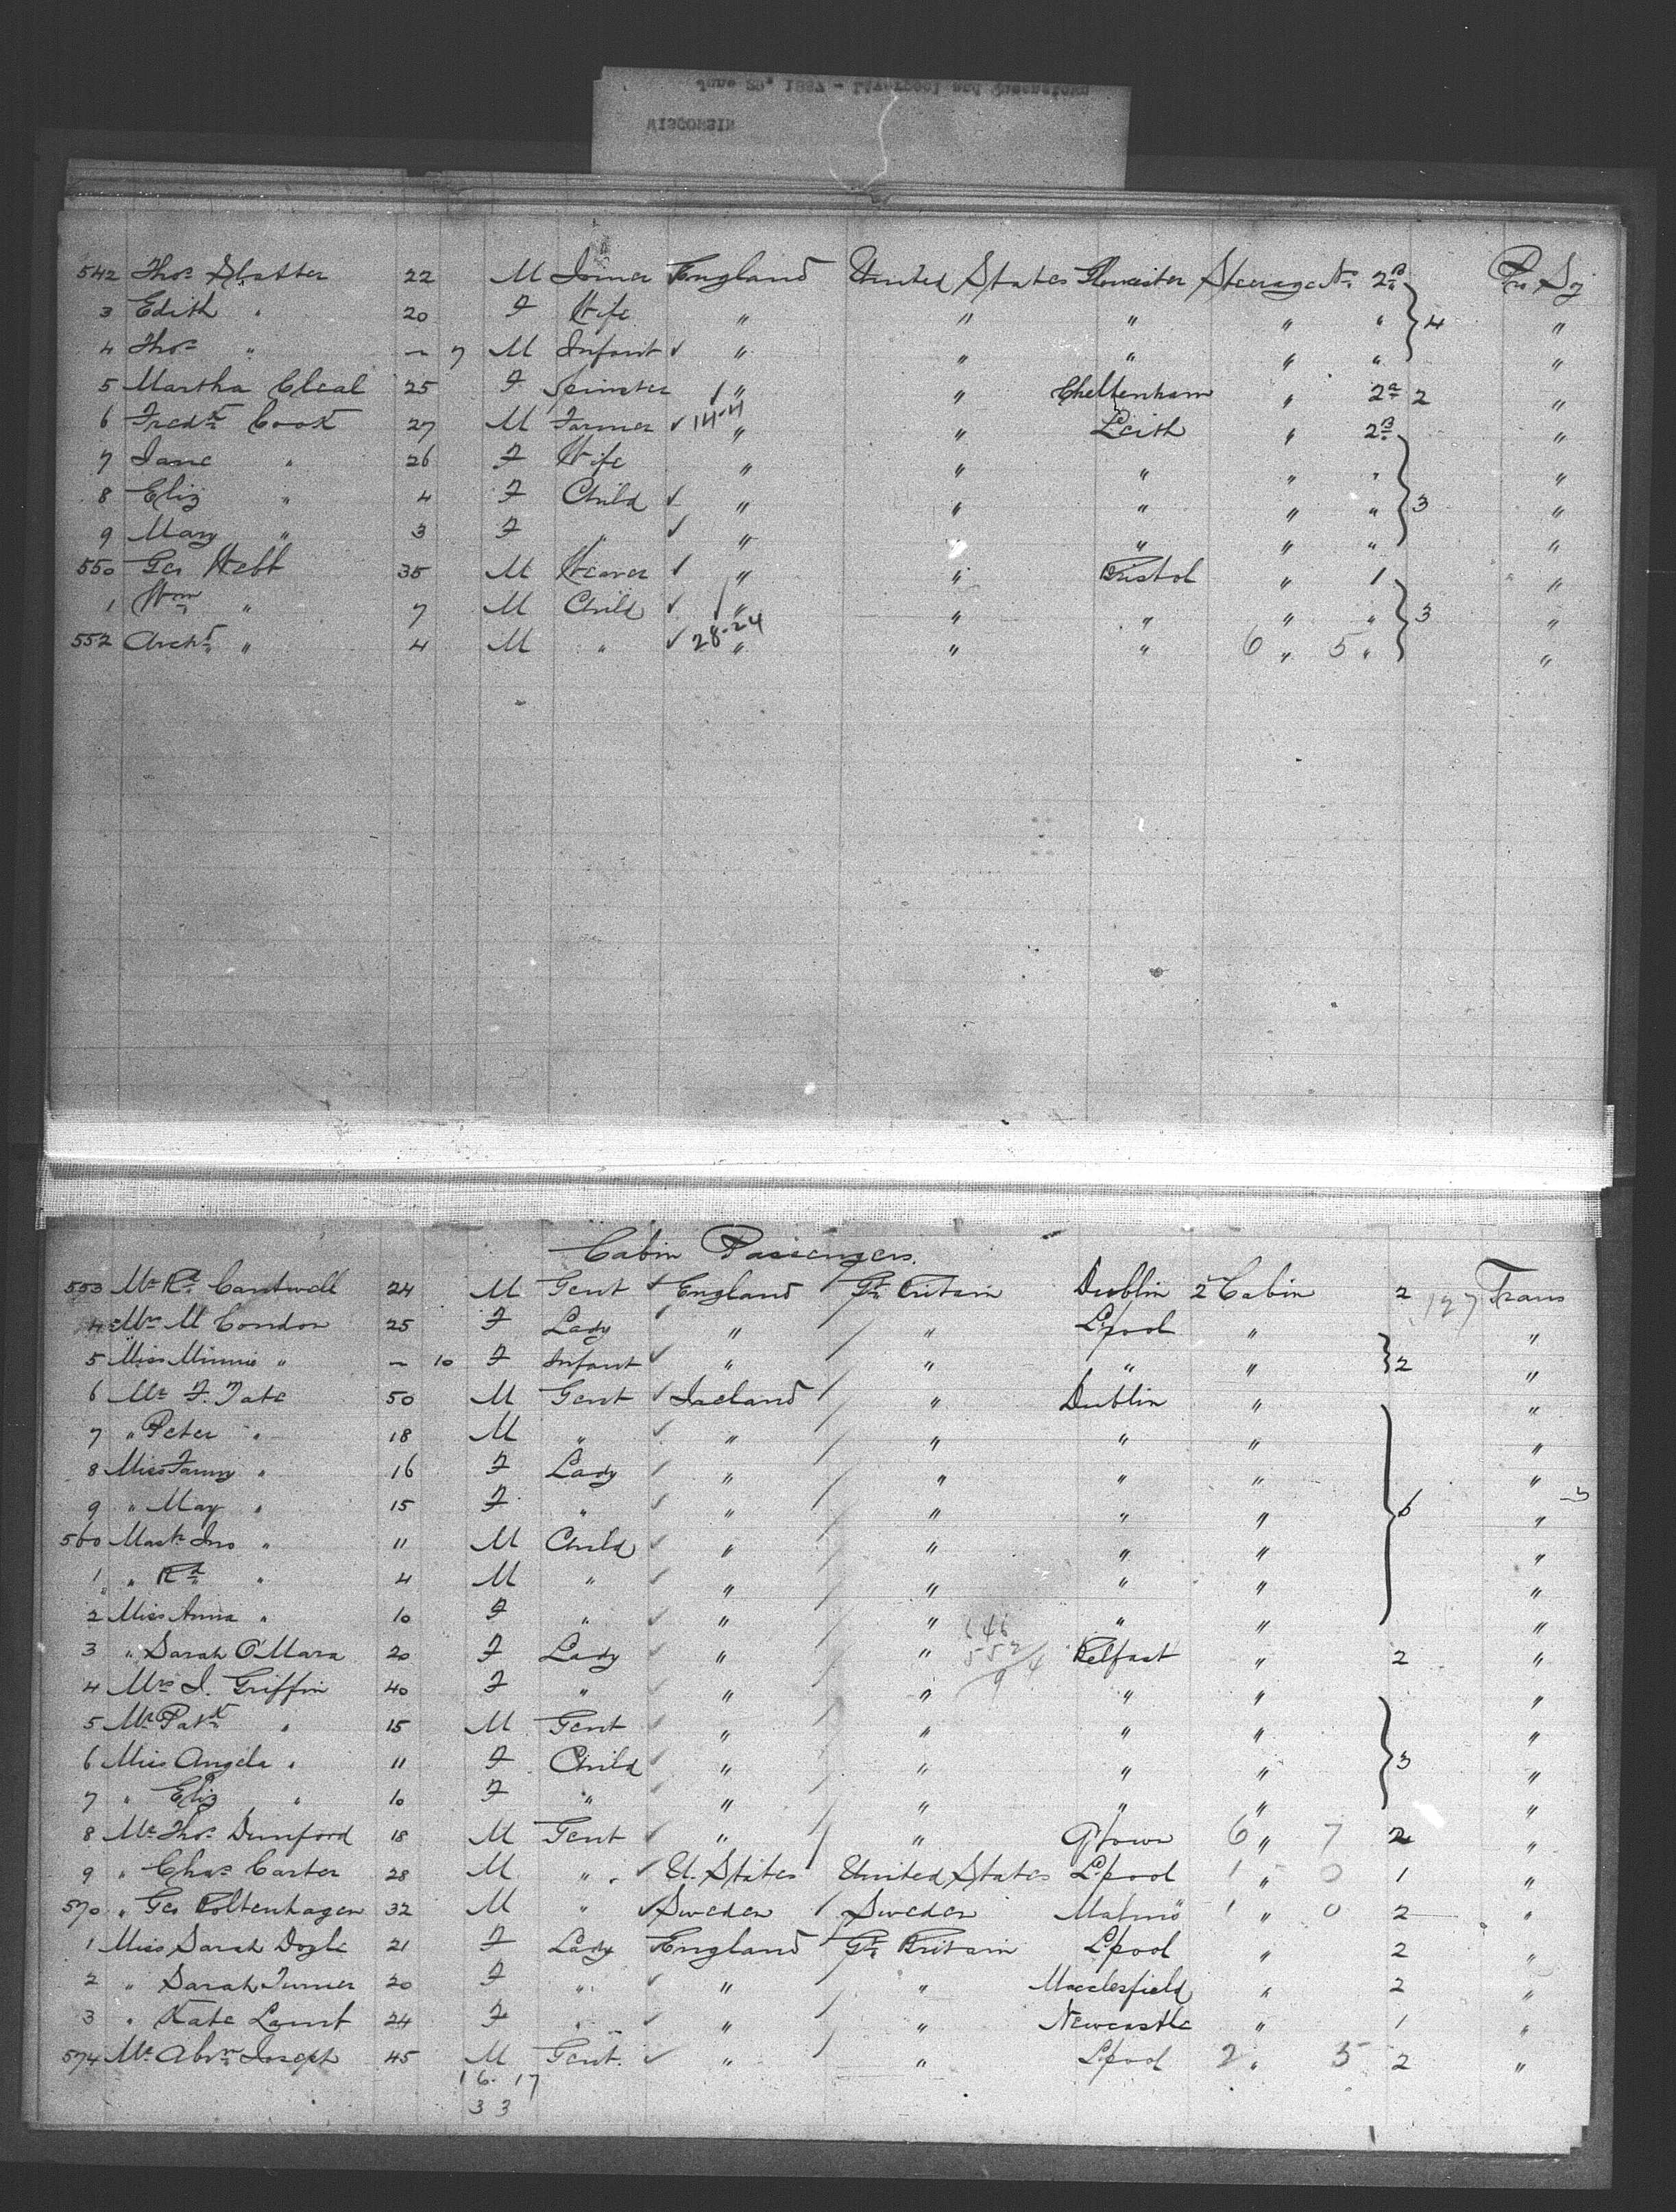 June 25, 1887 - Liverpool and Queenstown
WISCONSIN
542 Thos Slatter 22 M Joiner England United States Gloucester Steerage No 2B Pro Sj
3 Edith " 20 F Wife " " " " " 4 "
4 Thos " ~ 7 M Infant ✓ " " " " " "
5 Martha Cleal 25 F Spinster ✓ " " Cheltenham " 2a 2 "
6 Fredk Cook 27 M Farmer ✓ 14-11 " " Leith " 2B "
7 Jane " 26 F Wife " " " " " "
8 Eliz " 4 F Child ✓ " " " " " 3 "
9 Mary " 3 F " ✓ " " " " "
550 Geo Webb 35 M Weaver ✓ " " Bristol " 1 "
1 Wm " 7 M Child ✓ " " " " " 3 "
552 Archd " 4 M " ✓ 28-24 " " " 6 " 5 " "
Cabin Passengers.
553 Mr Rd Cantwell 24 M Gent ✓ England / Gt Britain Dublin 2 Cabin 2 127 Trans
4 Mrs M Condon 25 F Lady " / " L'pool " "
5 Miss Minnie " ~ 10 F Infant ✓ " / " " " 2 "
6 Mr F. Tate 50 M Gent ✓ Ireland / " Dublin " "
7 " Peter " 18 M " ✓ " / " " " "
8 Miss Fanny " 16 F Lady ✓ " / " " " "
9 " May " 15 F " ✓ " / " " " 6 "
560 Mastr Jno " 11 M Child ✓ " / " " " "
1 " Rd " 4 M " ✓ " / " " " "
2 Miss Anna " 10 F " ✓ " / " " " "
646
3 " Sarah O'Mara 20 F Lady ✓ " / " 552 Belfast " 2 "
94
4 Mrs J. Griffin 40 F " ✓ " / " " " "
5 Mr Patk " 15 M Gent ✓ " / " " " "
6 Miss Angela " 11 F Child ✓ " / " " " 3 "
7 " Eliz " 10 F " ✓ " / " " " "
8 Mr Thos Dunford 18 M Gent ✓ " / " Q'town 6 " 7 2 "
9 " Chas Carter 28 M " ✓ U. States United States L'pool 1 " 0 1 "
570 " Geo Poltenhagen 32 M " ✓ Sweden / Sweden Malmö 1 " 0 2 "
1 Miss Sarah Doyle 21 F Lady ✓ England / Gt Britain L'pool " 2 "
2 " Sarah Turner 20 F " ✓ " / " Macclesfield " 2 "
3 " Kate Lamb 24 F " ✓ " / " Newcastle " 1 "
574 Mr Abrm Joseph 45 M Gent. ✓ " / " L'pool 2 " 5 2 "
16. 17
33